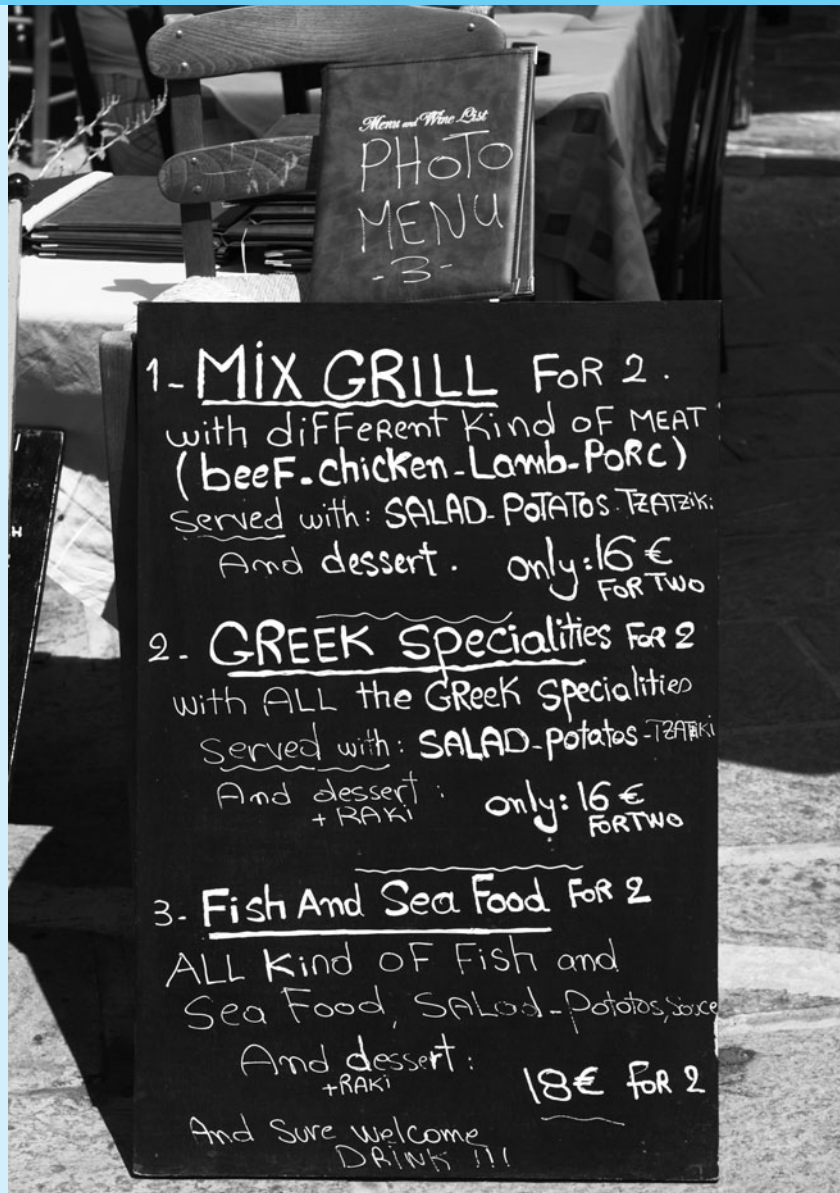 Menu and Wine List
PHOTO
MENU
-3-
1- MIX GRILL FOR 2.
with different Kind OF MEAT
(beeF-chicken-Lamb-PORC)
Served with: SALAD-POTATOS-TZATZiKi
And dessert. only: 16 €
FOR TWO
2- GREEK Specialities FOR 2
with ALL the GReeK Specialities
Served with: SALAD-Potatos-TZATZiKi
And dessert: only: 16 €
+ RAKi FOR TWO
3- Fish And Sea Food FoR 2
ALL Kind OF Fish and
Sea Food, SALad-Potatos, Souce
And dessert:
+RAKi 18€ FoR 2
And Sure welcome
DRiNK !!!